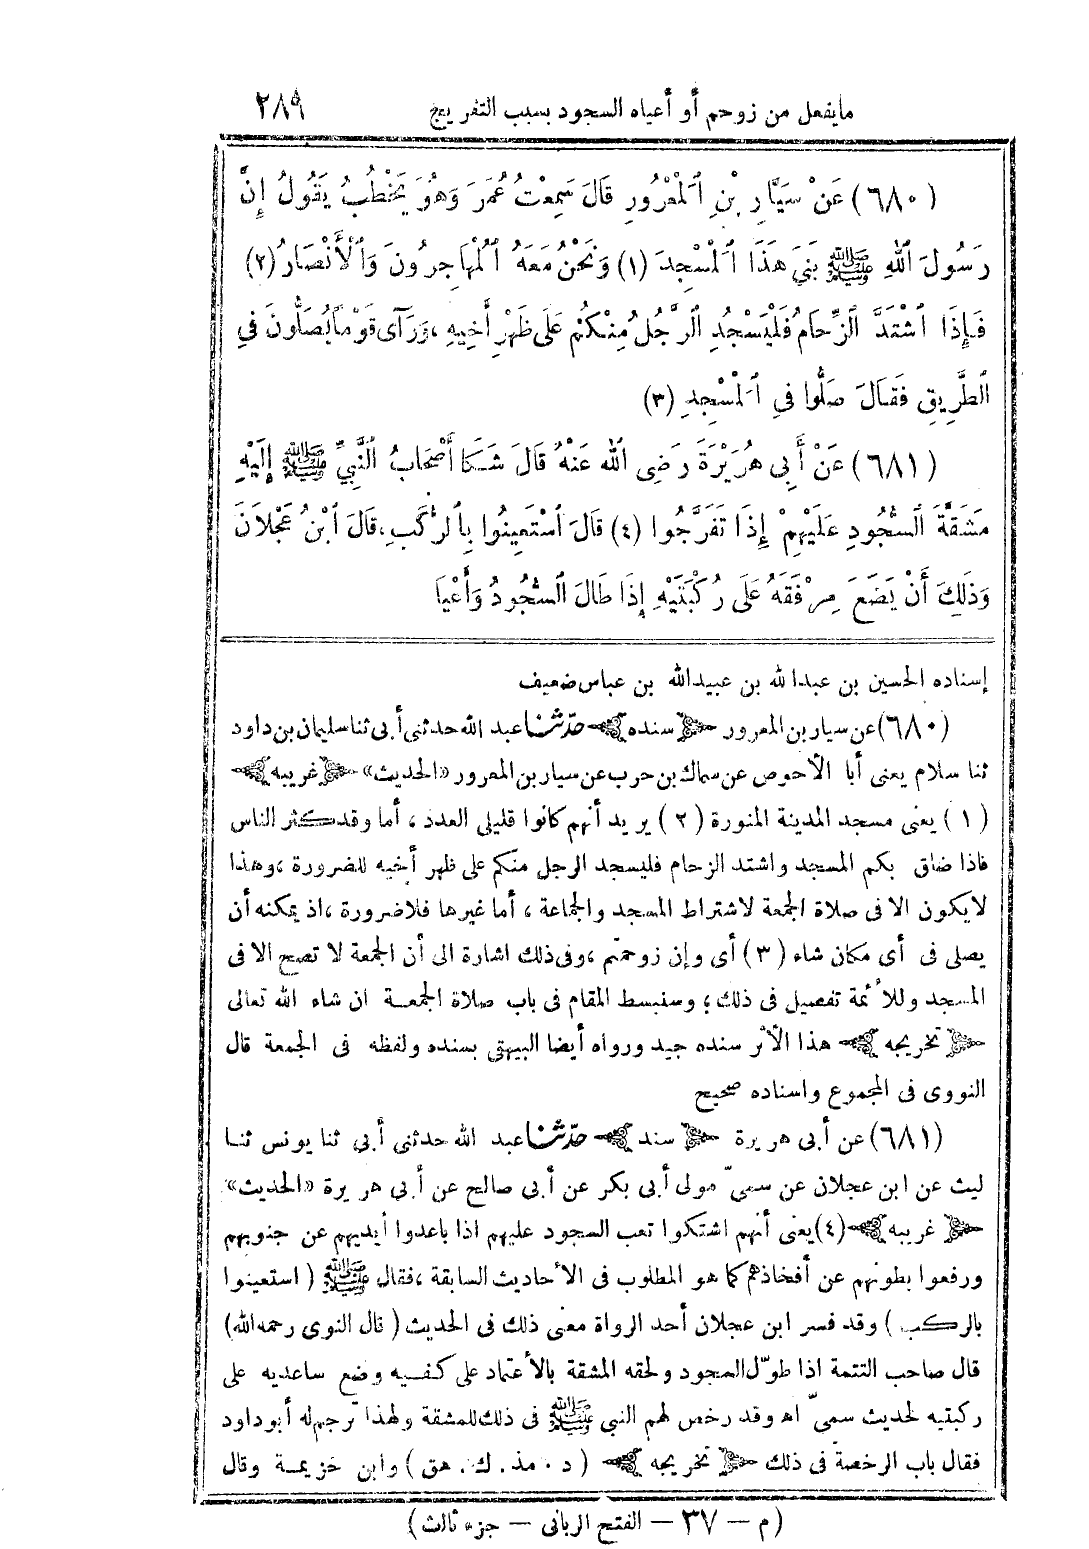 مايفعل من زوحم أو أعياه السجود بسبب التفريج ٢٨٩
(٦٨٠) عَنْ سَيَّارِ بْنِ ٱلْمَعْرُورِ قَالَ سَمِعْتُ عُمَرَ وَهُوَ يَخْطُبُ يَقُولُ إِنَّ
رَسُولَ ٱللهِ ﷺ بَنَى هَذَا ٱلْمَسْجِدَ (١) وَنَحْنُ مَعَهُ ٱلْمُهَاجِرُونَ وَٱلْأَنْصَارُ (٢)
فَإِذَا ٱشْتَدَّ ٱلزِّحَامُ فَلْيَسْجُدِ ٱلرَّجُلُ مِنْكُمْ عَلَى ظَهْرِ أَخِيهِ ، وَرَآى قَوْماً يُصَلُّونَ فِي
ٱلطَّرِيقِ فَقَالَ صَلُّوا فِي ٱلْمَسْجِدِ (٣)
(٦٨١) عَنْ أَبِى هُرَيْرَةَ رَضِىَ ٱللهُ عَنْهُ قَالَ شَكَا أَصْحَابُ ٱلنَّبِيِّ ﷺ إِلَيْهِ
مَشَقَّةَ ٱلسُّجُودِ عَلَيْهِمْ إِذَا تَفَرَّجُوا (٤) قَالَ ٱسْتَعِينُوا بِٱلرُّكَبِ، قَالَ ٱبْنُ عَجْلَانَ
وَذَلِكَ أَنْ يَضَعَ مِرْفَقَهُ عَلَى رُكْبَتَيْهِ إِذَا طَالَ ٱلسُّجُودُ وَأَعْيَا
إسناده الحسين بن عبدالله بن عبيدالله بن عباس ضعيف
(٦٨٠) عن سيار بن المعرور ﴿ سنده ﴾ حدّثنا عبد الله حدثنى أبى ثنا سليمان بن داود
ثنا سلام يعنى أبا الأحوص عن سماك بن حرب عن سيار بن المعرور «الحديث» ﴿ غريبه ﴾
(١) يعنى مسجد المدينة المنورة (٢) يريد أنهم كانوا قليلى العدد ، أما وقد كثر الناس
فاذا ضاق بكم المسجد واشتد الزحام فليسجد الرجل منكم على ظهر أخيه للضرورة ، وهذا
لايكون الا فى صلاة الجمعة لاشتراط المسجد والجماعة ، أما غيرها فلا ضرورة ، اذ يمكنه أن
يصلى فى أى مكان شاء (٣) أى وإن زوحمتم ، وفى ذلك اشارة الى أن الجمعة لا تصح الا فى
المسجد وللأئمة تفصيل فى ذلك ؛ وسنبسط المقام فى باب صلاة الجمعة ان شاء الله تعالى
﴿ تخريجه ﴾ هذا الأثر سنده جيد ورواه أيضا البيهقى بسنده ولفظه فى الجمعة قال
النووى فى المجموع واسناده صحيح
(٦٨١) عن أبى هريرة ﴿ سند ﴾ حدّثنا عبد الله حدثنى أبى ثنا يونس ثنا
ليث عن ابن عجلان عن سمىّ مولى أبى بكر عن أبى صالح عن أبى هريرة «الحديث»
﴿ غريبه ﴾ (٤) يعنى أنهم اشتكوا تعب السجود عليهم اذا باعدوا أيديهم عن جنوبهم
ورفعوا بطونهم عن أفخاذهم كما هو المطلوب فى الأحاديث السابقة ، فقال ﷺ ( استعينوا
بالركب ) وقد فسر ابن عجلان أحد الرواة معنى ذلك فى الحديث ( قال النوى رحمه الله)
قال صاحب التتمة اذا طوّل السجود ولحقه المشقة بالأعتماد على كفيه وضع ساعديه على
ركبتيه لحديث سمىّ اه وقد رخص لهم النبى ﷺ فى ذلك للمشقة ولهذا ترجم له أبو داود
فقال باب الرخصة فى ذلك ﴿ تخريجه ﴾ ( د . مذ . ك . هق ) وابن خزيمة وقال
(م — ٣٧ — الفتح الربانى — جزء ثالث)